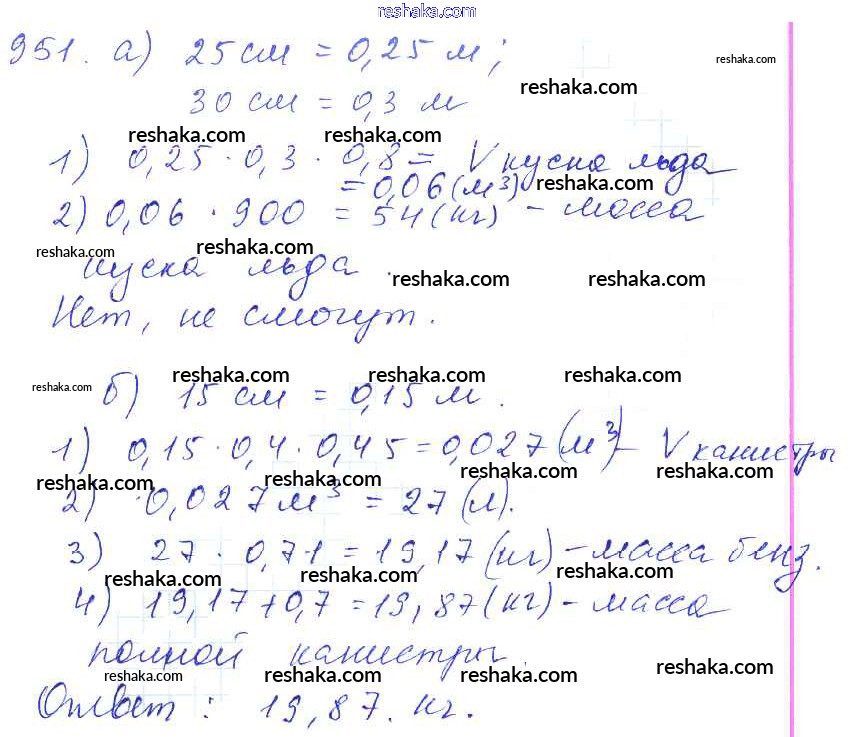 reshaka.com
951. а) 25 см = 0,25 м;
reshaka.com
reshaka.com
30 см = 0,3 м
reshaka.com reshaka.com
1) 0,25 · 0,3 · 0,8 = V куска льда
= 0,06 (м³) reshaka.com
2) 0,06 · 900 = 54 (кг) - масса
reshaka.com reshaka.com
куска льда.
reshaka.com reshaka.com
Нет, не смогут.
reshaka.com reshaka.com reshaka.com
reshaka.com
б) 15 см = 0,15 м.
1) 0,15 · 0,4 · 0,45 = 0,027 (м³) - V канистры
reshaka.com reshaka.com reshaka.com reshaka.com
2) 0,027 м³ = 27 (л).
3) 27 · 0,71 = 19,17 (кг) - масса бенз.
reshaka.com reshaka.com reshaka.com
4) 19,17 + 0,7 = 19,87 (кг) - масса
полной канистры.
reshaka.com reshaka.com reshaka.com reshaka.com
Ответ: 19,87 кг.